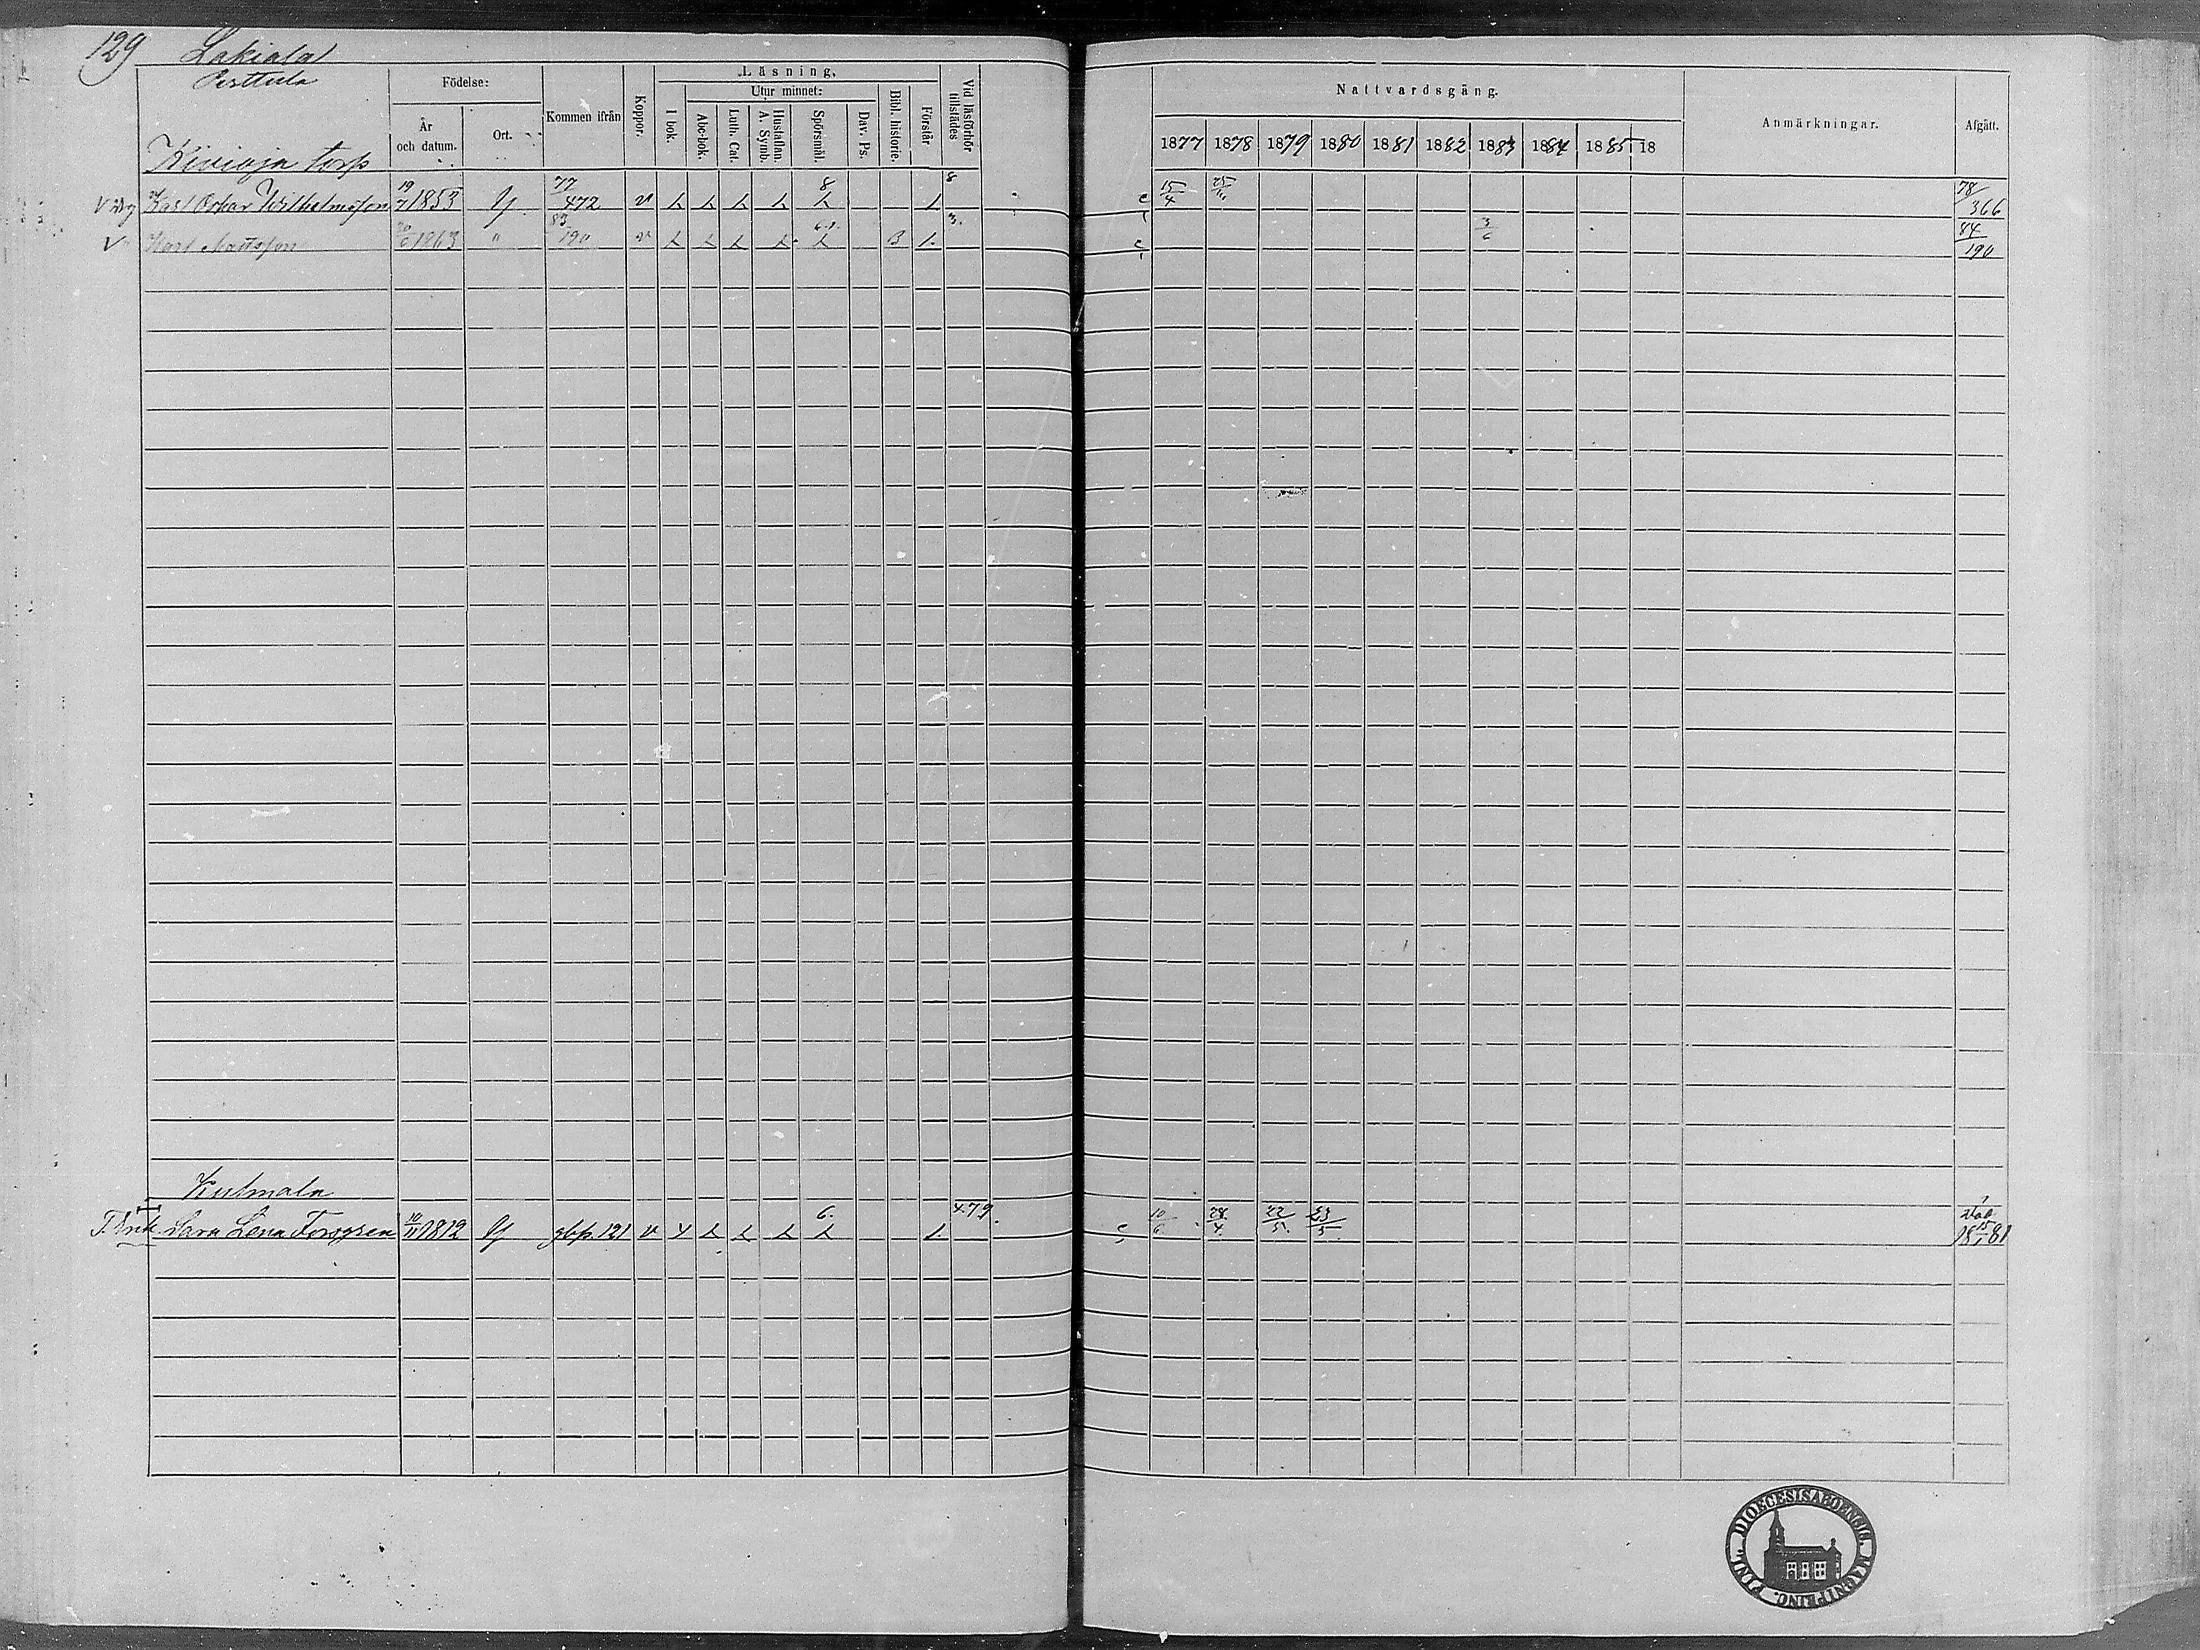 129 Lakiala
Perttula
Kivioja torp
Födelse:
År och datum.
Ort.
Kommen ifrån
Koppor.
Läsning.
I bok.
Utur minnet:
Abc-bok.
Luth. Cat.
Hustaflan. A. Symb.
Spörsmål.
Dav. Ps.
Bibl. historie.
Förstår
Vid läsförhör tillstädes
Nattvardsgång.
1877 1878 1879 1880 1881 1882 1883 1884 1885 18
Anmärkningar.
Afgått.
Karl Oskar Wilhelmsson 19/7 1853 Y 77/472 v 8 1 8 15/4 25/11 78/366
Karl Mattsson 20/6 1863 " 83/190 v B 1. 3. 3/6 84/190
Kulmala
Sara Lena Forsgren 10/11 1812 Y gbp. 121 v 6. 1. 479. 10/6 28/4 22/5 23/5 Död 18 15/1 81
FINL. DIOECESIS ABOENSIC. MAGNI PRINC.